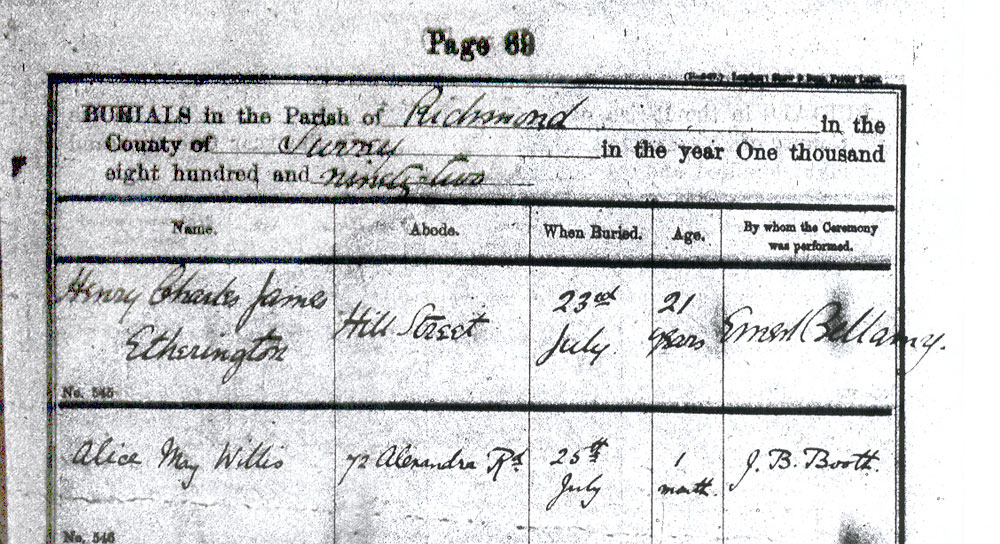 Page 69
BURIALS in the Parish of Richmond in the
County of Surrey in the year One thousand
eight hundred and ninety-two
Name. Abode. When Buried. Age. By whom the Ceremony
was performed.
Henry Charles James
Etherington
Hill Street
23rd
July
21
years
Ernest Bellamy.
No. 545
Alice May Willis
72 Alexandra Rd
25th
July
1
month.
J. B. Booth.
No. 546